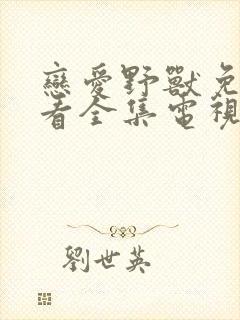 戀愛野獸免
看全集電視
劉世英